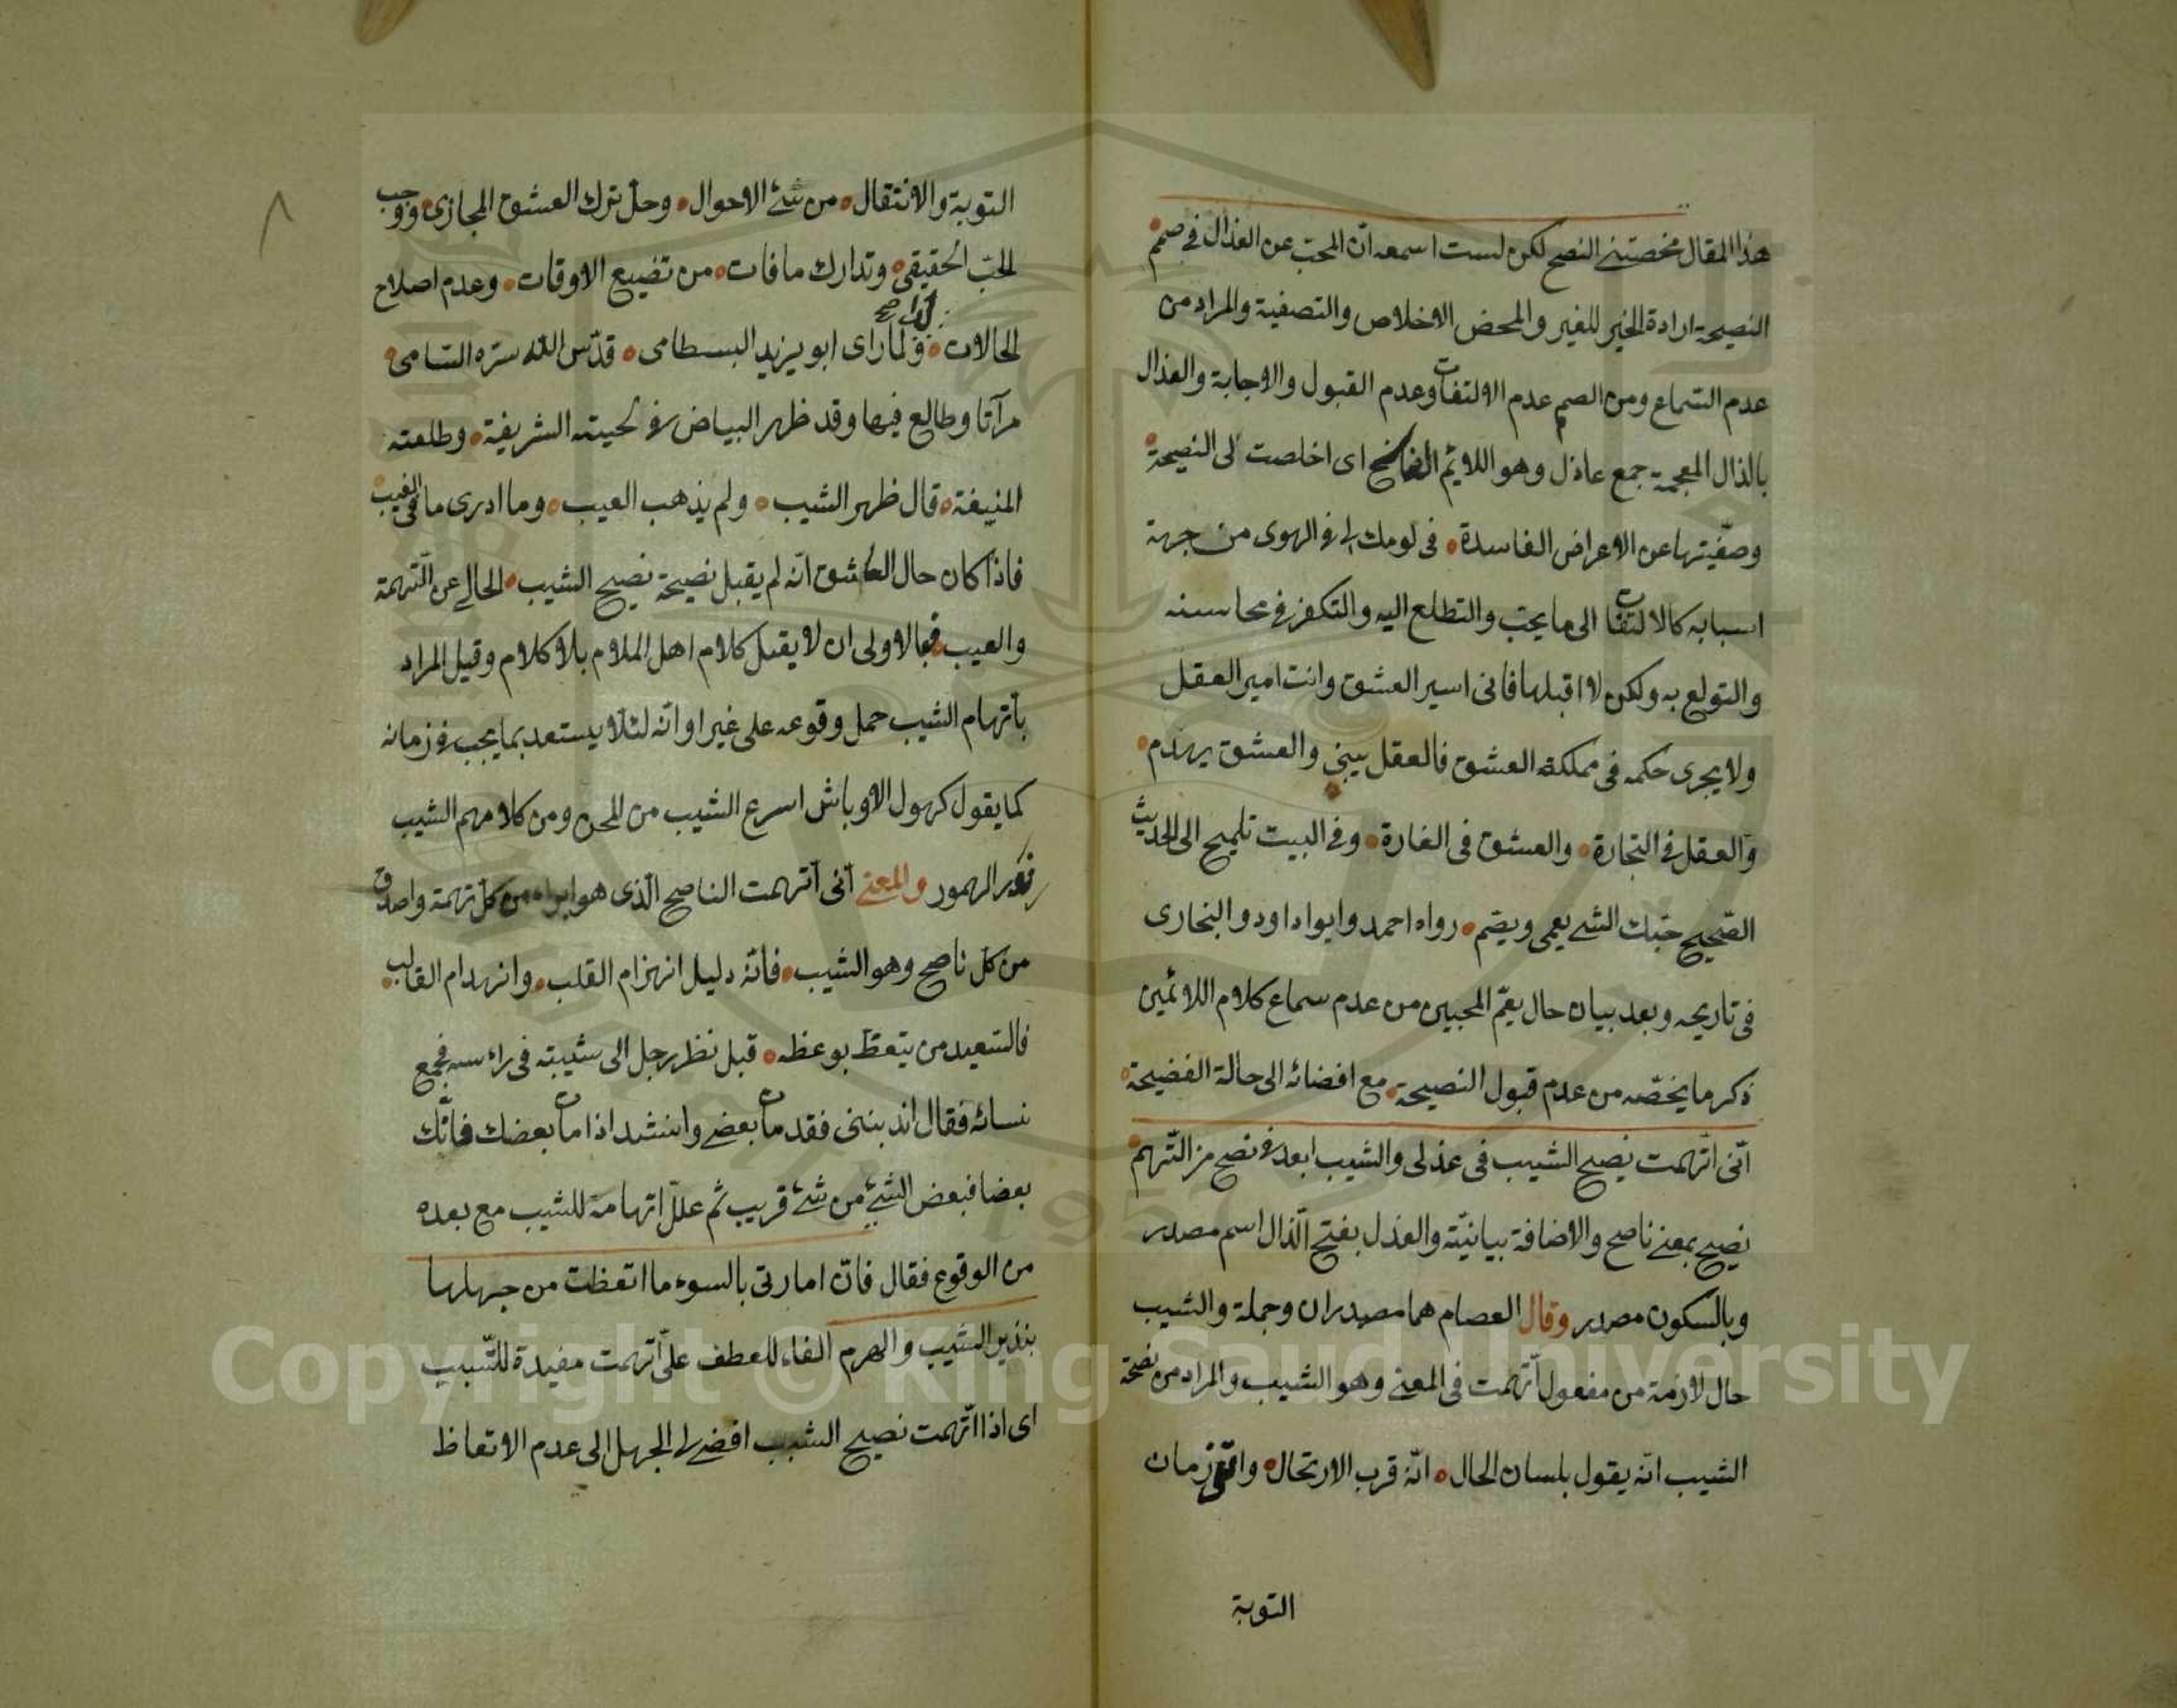 هذا المقال محضتني النصح لكن لست اسمعه انّ المحبّ عن العذال في صمم
النصيحة ارادة الخير للغير والمحض الاخلاص والتصفية والمراد من
عدم السماع ومن الصمم عدم الالتفات وعدم القبول والاجابة والعذال
بالذال المعجمة جمع عاذل وهو اللائم اى اخلصت لى النصيحة
وصفّيتها عن الاعراض الفاسدة فى لومك لى فى الهوى من جهة
اسبابه كالالتفات الى ما يحب والتطلع اليه والتكفر فى محاسنه
والتولع به ولكن لا اقبلها فانى اسير العشق وانت امير العقل
ولا يجرى حكمه فى مملكة العشق فالعقل يبنى والعشق يهدم
والعقل فى التجارة والعشق فى الغارة وفى البيت تلميح الى الحديث
الصّحيح حبّك الشئ يعمى ويصّم رواه احمد وابوا داود والبخارى
فى تاريحه وبعد بيان حال يعمّ المحبين من عدم سماع كلام اللائمين
ذكر ما يخصّه من عدم قبول النصيحة مع افضائه الى حالة الفضيحة
انّى اتّهمت نصيح الشيب فى عذلى والشيب ابعد فى نصح من التّهم
نصيح بمعنى ناصح والاضافة بيانيّة والعذل بفتح الّذال اسم مصدر
وبالسكون مصدر وقال العصام هما مصدران وجملة والشيب
حال لازمة من مفعول اتّهمت فى المعنى وهو الشيب والمراد من نصحة
الشيب انّه يقول بلسان الحال انّه قرب الارتحال واتى زمان
التوبة
التوبة والانتقال من شئ الاحوال وحل ترك العشق المجازى ووجب
الحبّ الحقيقى وتدارك ما فات من تضييع الاوقات وعدم اصلاح
الحالات ولما راى ابو يزيد البسطامى قدّس اللّه سرّه السّامى
مرآتا وطالع فيها وقد ظهر البياض فى لحيته الشريفة وطلعته
المنيفة قال ظهر الشيب ولم يذهب العيب وما ادرى ما فى الغيب
فاذا كان حال العاشق انّه لم يقبل نصيحة نصيح الشيب الحالى عن التّهمة
والعيب فبالاولى ان لا يقبل كلام اهل الملام بلا كلام وقيل المراد
باتّهام الشيب حمل وقوعه على غير اوانّه لئلا يستعد بما يجب فى زمانه
كما يقول كهول الاوباش اسرع الشيب من المحن ومن كلامهم الشيب
الهموم والمعنى انّى اتّهمت الناصح الّذى هو ابراء من كلّ تهمة واصدق
من كل ناصح وهو الشيب فانّه دليل انهزام القلب وانهدام القالب
فالسّعيد من يتعظ بوعظه قيل نظر رجل الى شيبته فى راسه فجمع
نسائه فقال اندبننى فقد مات بعضى وانشد اذا مات بعضك فابك
بعضا فبعض الشئ من شئ قريب ثم علل اتهامه للشيب مع بعده
من الوقوع فقال فانّ امارتى بالسوء ما اتعظت من جهلها
بنذير الشيب والهرم الفاء للعطف على اتّهمت مفيدة للسّبب
اى اذا اتّهمت نصيح الشيب افضى لى الجهل الى عدم الاتعاظ
Copyright © King Saud University